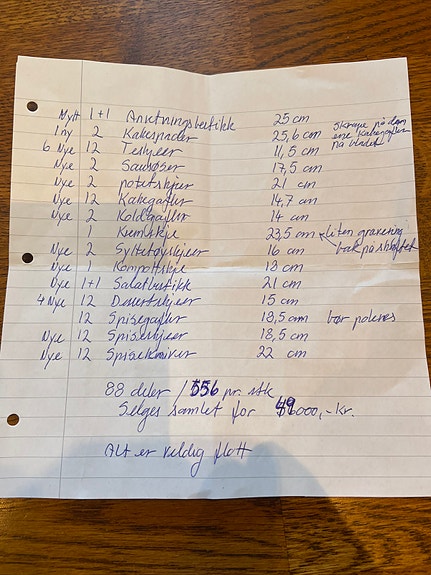 Nytt 1+1 Anretningsbestikk 25 cm
1 ny 2 Kakespader 25,6 cm skrape på den ene kakegaflen på bladet
6 Nye 12 Teskjeer 11,5 cm
Nye 2 Sausøser 17,5 cm
Nye 2 potetskjeer 21 cm
Nye 12 Kakegafler 14,7 cm
Nye 2 Koldgafler 14 cm
1 Kumskje 23,5 cm liten gravering bak på skaftet
Nye 2 Syltetøyskjeer 16 cm
Nye 1 Kompottskje 18 cm
Nye 1+1 Salatbestikk 21 cm
4 Nye 12 Dessertskjeer 15 cm
12 Spisegafler 18,5 cm bør poleres
Nye 12 Spiseskjeer 18,5 cm
Nye 12 Spisekniver 22 cm
88 deler / 556 pr. stk
Selges samlet for 49000,- kr.
Alt er veldig flott